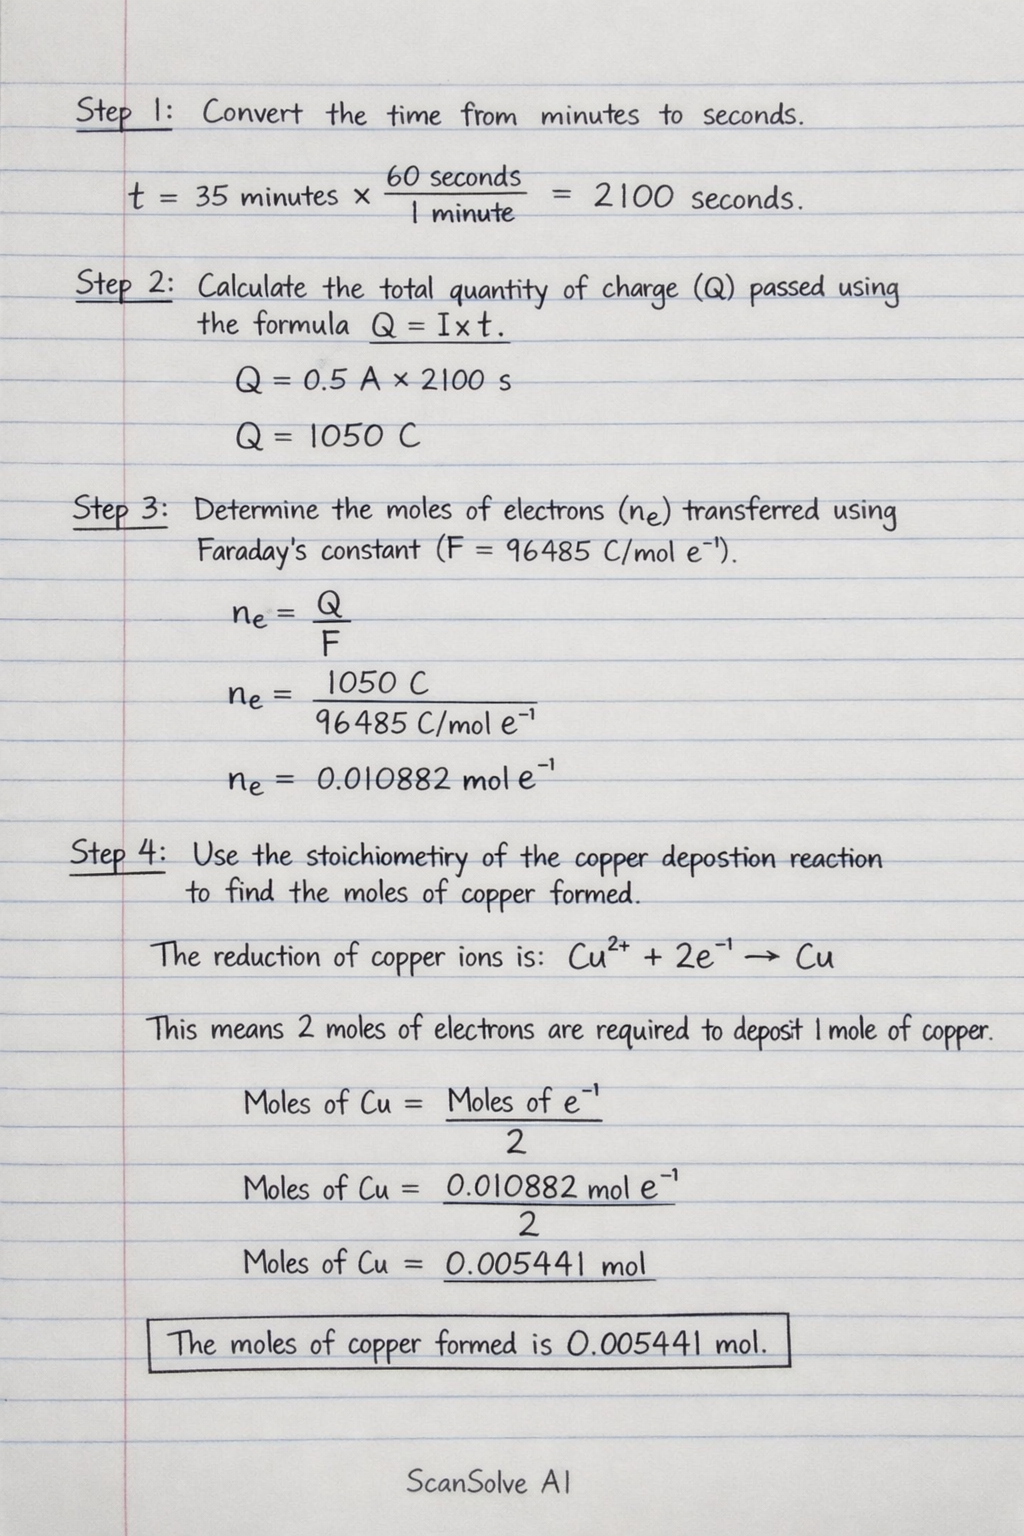 Step 1: Convert the time from minutes to seconds.
t = 35 minutes × 60 seconds / 1 minute = 2100 seconds.
Step 2: Calculate the total quantity of charge (Q) passed using
the formula Q = I×t.
Q = 0.5 A × 2100 s
Q = 1050 C
Step 3: Determine the moles of electrons (nₑ) transferred using
Faraday's constant (F = 96485 C/mol e⁻¹).
nₑ = Q / F
nₑ = 1050 C / 96485 C/mol e⁻¹
nₑ = 0.010882 mol e⁻¹
Step 4: Use the stoichiometiry of the copper depostion reaction
to find the moles of copper formed.
The reduction of copper ions is: Cu²⁺ + 2e⁻¹ → Cu
This means 2 moles of electrons are required to deposit 1 mole of copper.
Moles of Cu = Moles of e⁻¹ / 2
Moles of Cu = 0.010882 mol e⁻¹ / 2
Moles of Cu = 0.005441 mol
The moles of copper formed is 0.005441 mol.
ScanSolve AI